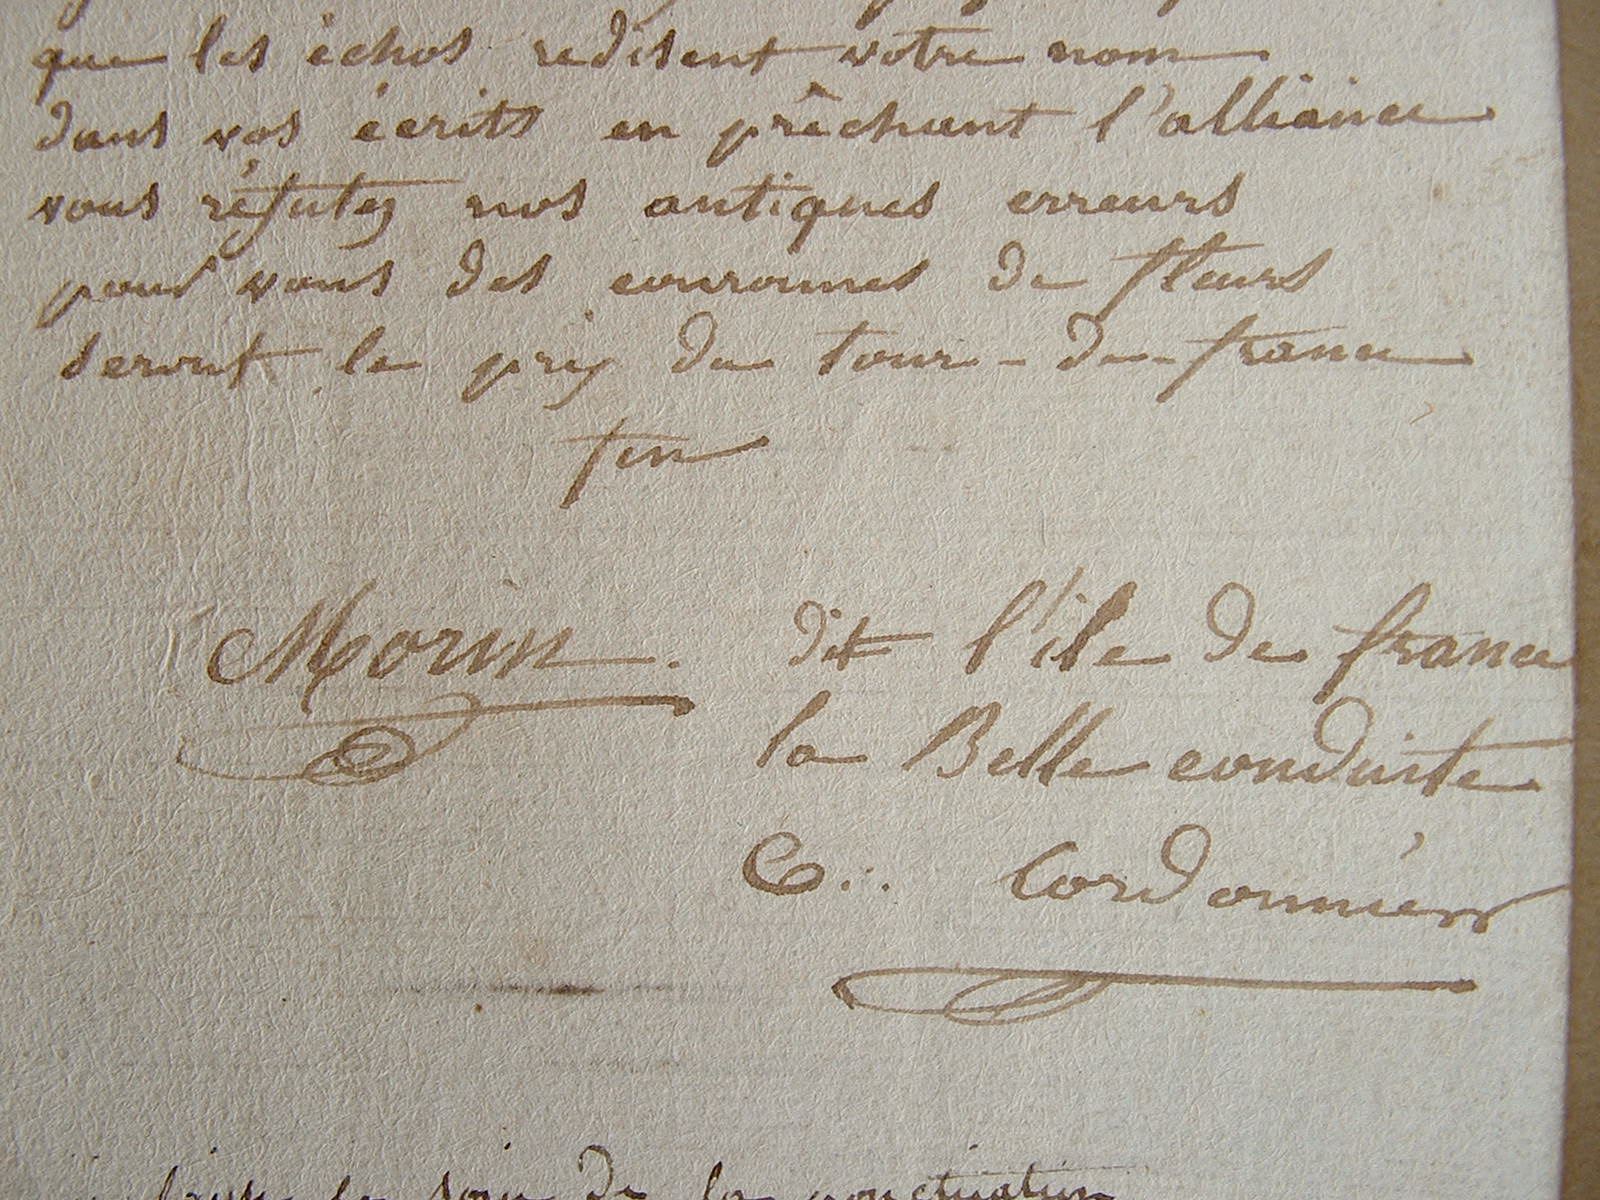 que les échos redisent votre nom
dans vos écrits en prêchant l'alliance
vous réfutez nos antiques erreurs
pour vous des couronnes de fleurs
seront le prix du tour-de-france
fin
Morin. dit l'ile de france
la Belle conduite
C... Cordonnier
le soin de la ponctuation